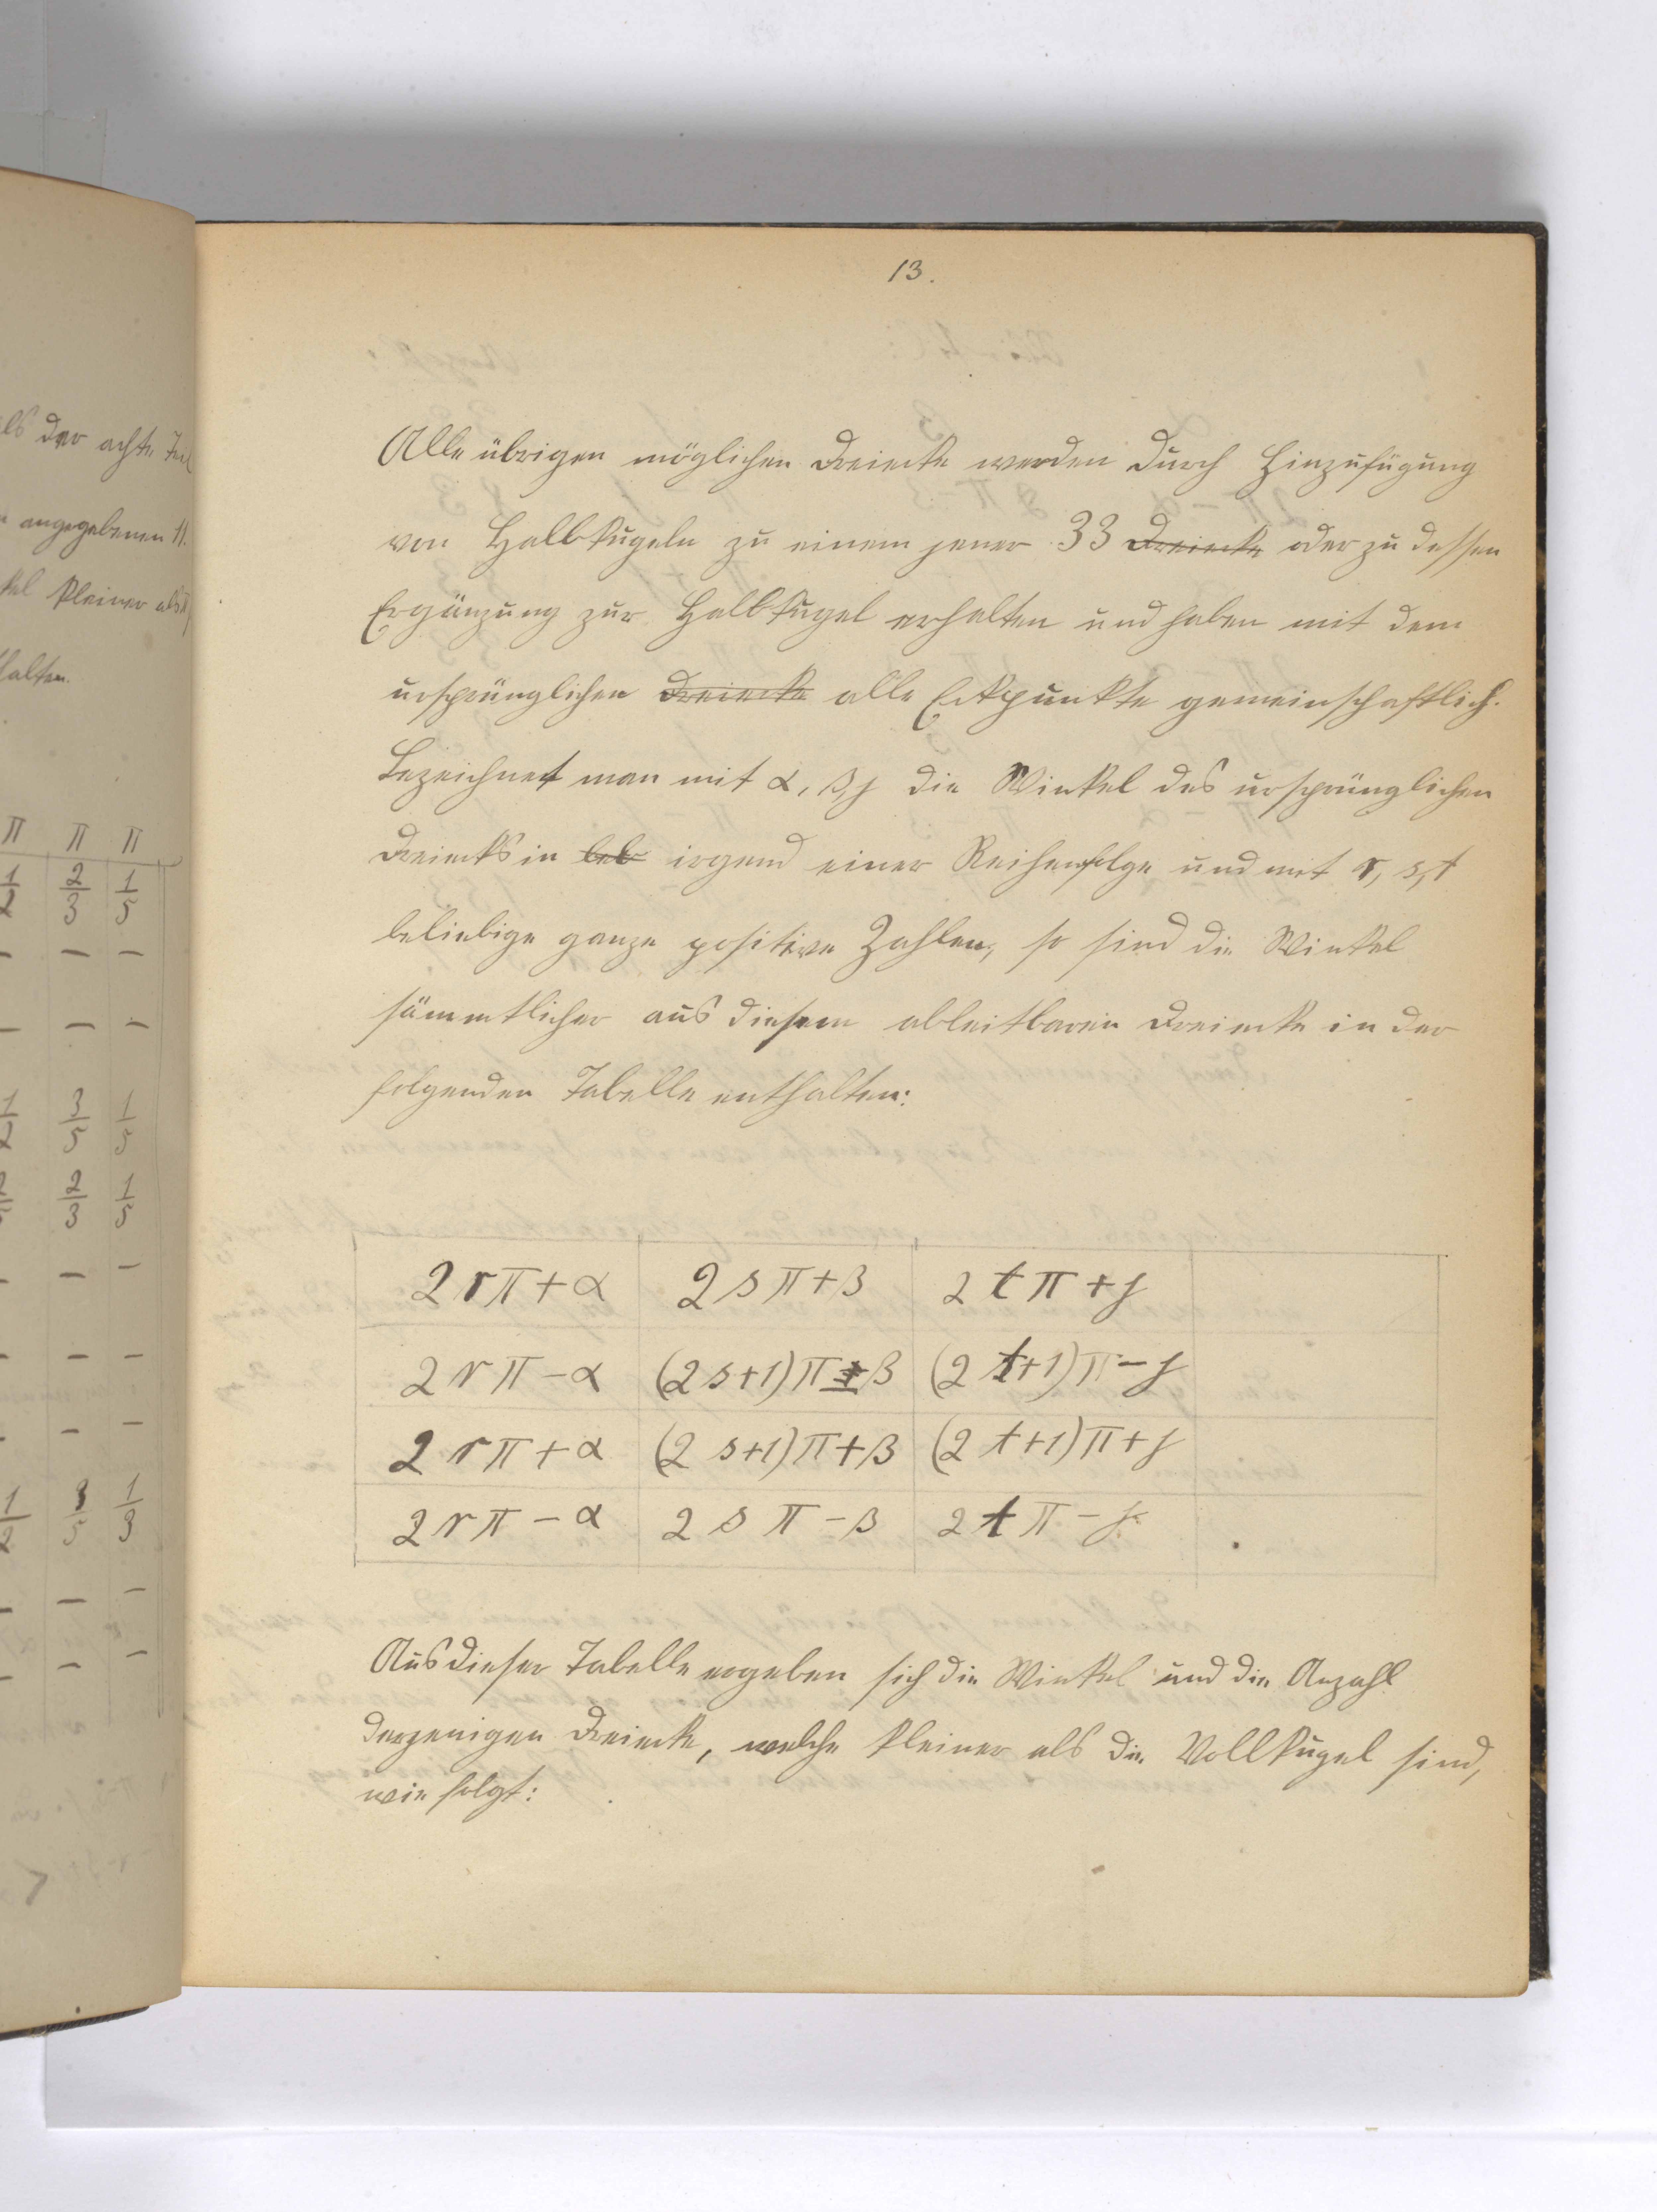 13.
Alle übrigen möglichen Dreiecke werden durch Hinzufügung
von Halbkugeln zu einem jener 33 Dreiecke oder zu dessen
Ergänzung zur Halbkugel erhalten und haben mit dem
ursprünglichen Dreiecke alle Eckpunkte gemeinschaftlich.
Bezeichnet man mit α, β, γ die Winkel des ursprünglichen
Dreiecks in bel irgend einer Reihenfolge und mit r, s, t
beliebige ganze positive Zahlen, so sind die Winkel
sämmtlicher aus diesem ableitbaren Dreiecke in der
folgenden Tabelle enthalten:
2rπ+α 2sπ+β 2tπ+γ
2rπ-α (2s+1)π±β (2t+1)π-γ
2rπ+α (2s+1)π+β (2t+1)π+γ
2rπ-α 2sπ-β 2tπ-γ
Aus dieser Tabelle ergeben sich die Winkel und die Anzahl
derjenigen Dreiecke, welche kleiner als die Vollkugel sind,
wie folgt:
als der achte Teil
angegebenen 11.
kleiner als π
halten.
π π π
1/2 2/3 1/5
– – –
– – –
1/2 3/5 1/5
2/5 2/3 1/5
– – –
– – –
– – –
1/2 3/5 1/3
– – –
– – –